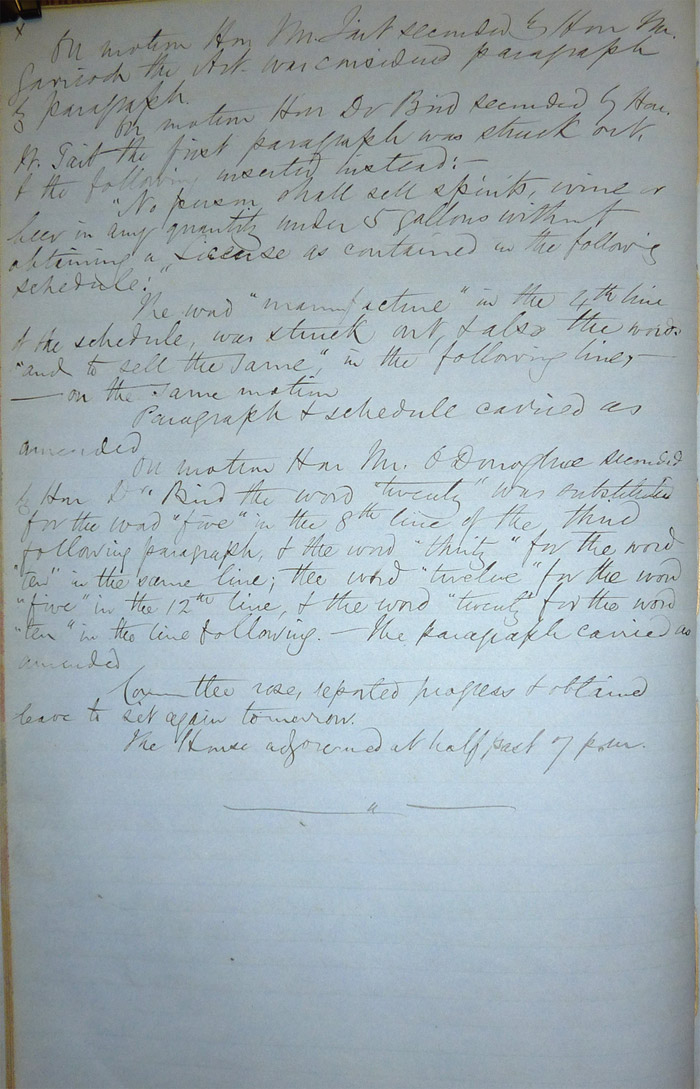 x
On motion Hon Mr. Tait seconded by Hon Mr.
Garrioch the Act was considered paragraph
by paragraph.
On motion Hon Dr Bird seconded by Hon.
Mr. Tait the first paragraph was struck out,
& the following inserted instead:-
"No person shall sell spirits, wine or
beer in any quantity under 5 gallons without
obtaining a License as contained in the following
schedule:"
The word "manufacture" in the 4th line
of the schedule, was struck out, & also the words
"and to sell the same", in the following line,-
— on the same motion
Paragraph & schedule carried as
amended
On motion Hon Mr. O'Donoghue seconded
by Hon Dr Bird the word "twenty" was substituted
for the word "five" in the 8th line of the third
following paragraph, & the word "thirty" for the word
"ten" in the same line; the word "twelve" for the word
"five" in the 12th line, & the word "twenty" for the word
"ten" in the line following. — The paragraph carried as
amended
Committee rose, reported progress & obtained
leave to sit again tomorrow.
The House adjourned at half past 7 p.m.